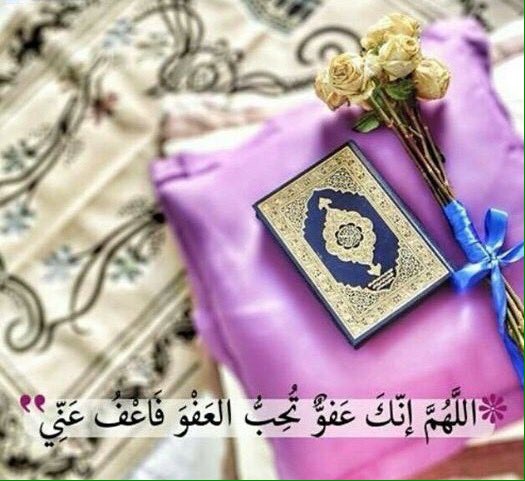 اللَّهُمَّ إِنَّكَ عَفُوٌّ تُحِبُّ العَفْوَ فَاعْفُ عَنِّي”